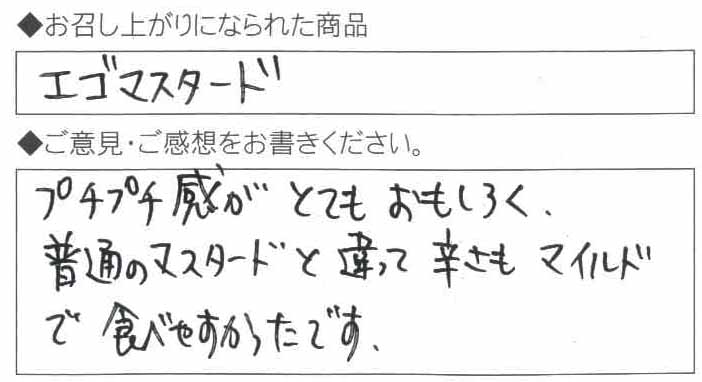 ◆お召し上がりになられた商品
エゴマスタード
◆ご意見・ご感想をお書きください。
プチプチ感がとてもおもしろく、
普通のマスタードと違って辛さもマイルド
で食べやすかったです。